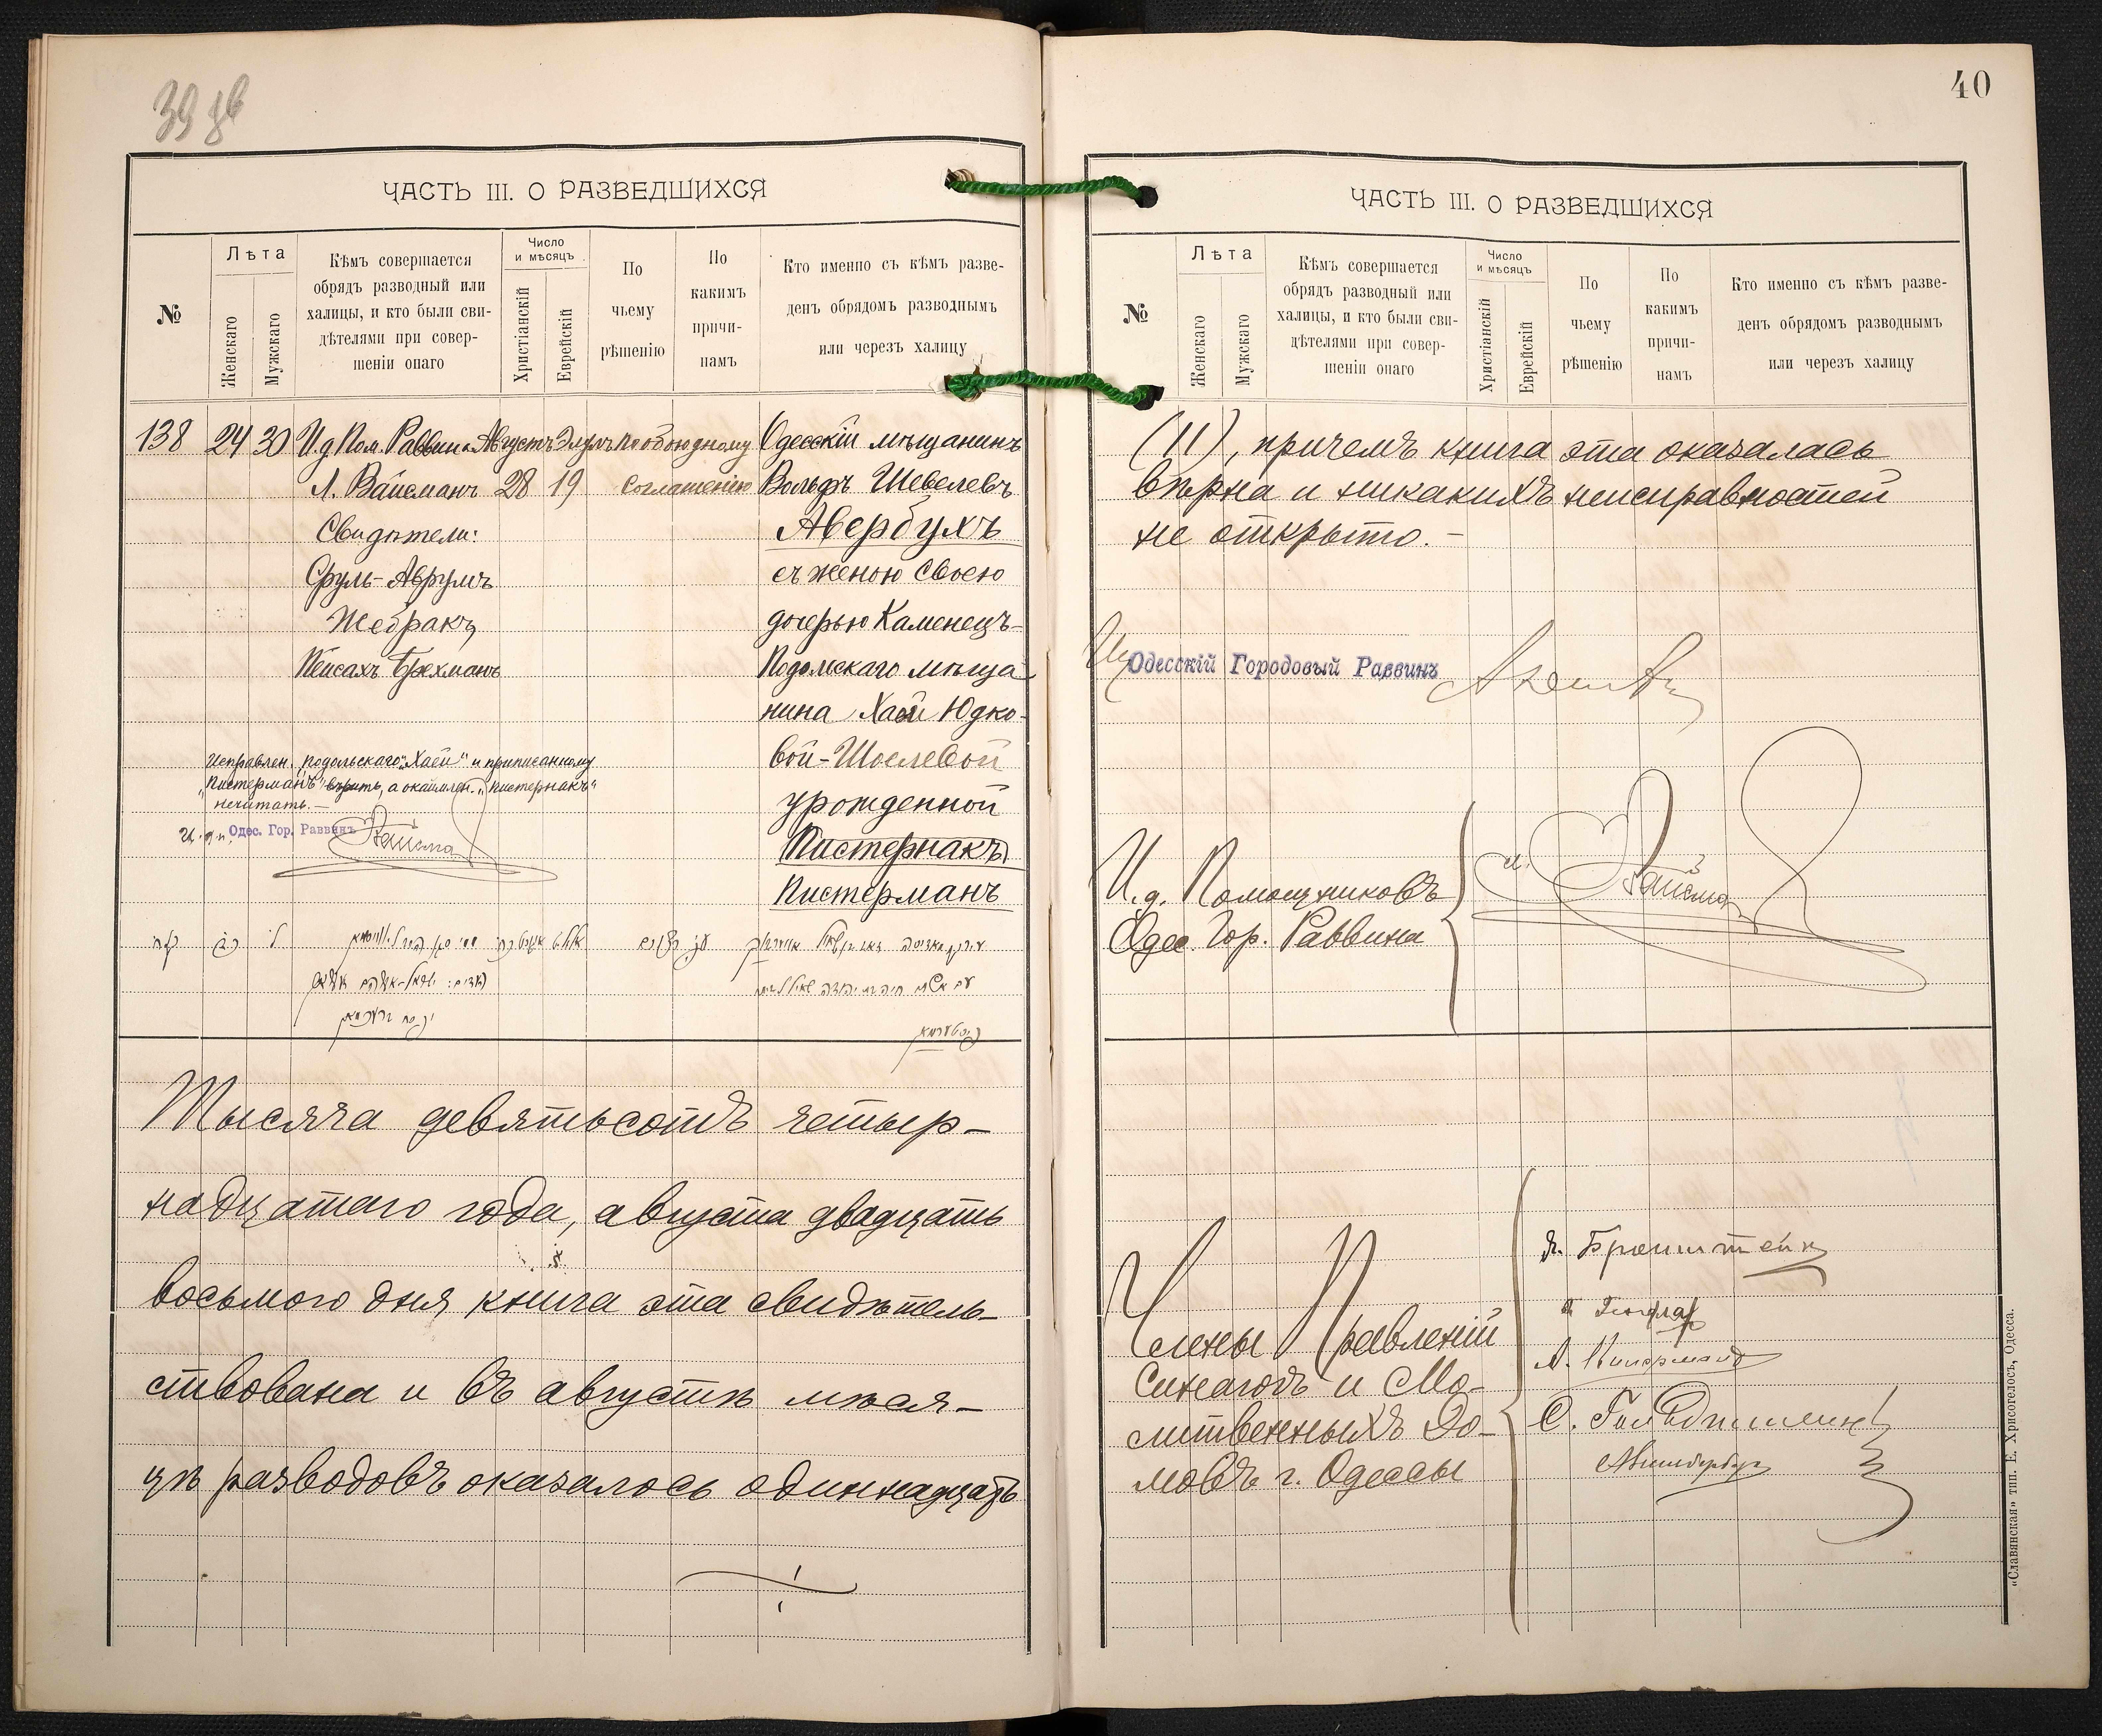 39 об
ЧАСТЬ III. О РАЗВЕДШИХСЯ
№
Лѣта
Женскаго
Мужскаго
Кѣмъ совершается
обрядъ разводный или
халицы, и кто были сви-
дѣтелями при совер-
шеніи онаго
Число
и мѣсяцъ
Христіанскій
Еврейскій
По
чьему
рѣшенію
По
какимъ
причи-
намъ
Кто именно съ кѣмъ разве-
денъ обрядомъ разводнымъ
или черезъ халицу
138 24 30 И.д. Пом. Раввина Августъ Элулъ По обоюдному Одесскій мѣщанинъ
Л. Вайсманъ 28 19 соглашенію Вольфъ Шевелевъ
Свидѣтели: Авербухъ
Сруль-Аврумъ съ женою своею
Жебракъ дочерью Каменецъ-
Пейсахъ Брехманъ Подольскаго мѣща
нина Хаей Юдко-
вой-Шоелевой
урожденной
(Пистернакъ)
Пистерманъ
Исправлен. подольскаго, „Хаей" и приписанному
„Пистерманъ" вѣрить, а окаймлен. „Пистернакъ"
нечитать.—
И. д. п. Одес. Гор. Раввинъ Вайсман
Тысяча девятьсотъ четыр-
надцатаго года, августа двадцать
восьмого дня книга эта свидѣтель-
ствована и въ августѣ мѣся-
цѣ разводовъ оказалось одиннадцать
40
ЧАСТЬ III. О РАЗВЕДШИХСЯ
№
Лѣта
Женскаго
Мужскаго
Кѣмъ совершается
обрядъ разводный или
халицы, и кто были сви-
дѣтелями при совер-
шеніи онаго
Число
и мѣсяцъ
Христіанскій
Еврейскій
По
чьему
рѣшенію
По
какимъ
причи-
намъ
Кто именно съ кѣмъ разве-
денъ обрядомъ разводнымъ
или черезъ халицу
(11), причемъ книга эта оказалась
вѣрна и никакихъ неисправностей
не открыто.—
Одесскій Городовый Раввинъ
И.д. Помощниковъ
Одес. Гор. Раввина
Л. Вайсман
Члены Правленій
Синагогъ и Мо-
литвенныхъ До-
мовъ г. Одессы
Я. Бронштейн
«Славянская» тип. Е. Хрисогелосъ, Одесса.